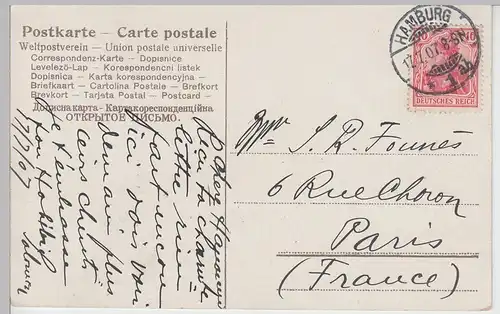 Postkarte - Carte postale
Weltpostverein - Union postale universelle
Correspondenz-Karte - Dopisnice
Levelező-Lap - Korespondencni listek
Dopisnica - Karta korespondencyjna -
Briefkaart - Cartolina Postale - Brefkort
Brevkort - Tarjeta Postal - Postcard -
Дописна карта - Картакореспонденційна
ОТКРЫТОЕ ПИСЬМО.
HAMBURG
17.7.07. 8-9N
* 1 ab
10 10
DEUTSCHES REICH
Mr S. R. Founès
6 Rue Choron
Paris
(France)
Reçu ta
lettre rien
ici
demain plus
je t'embrasse
ton
17/7/07